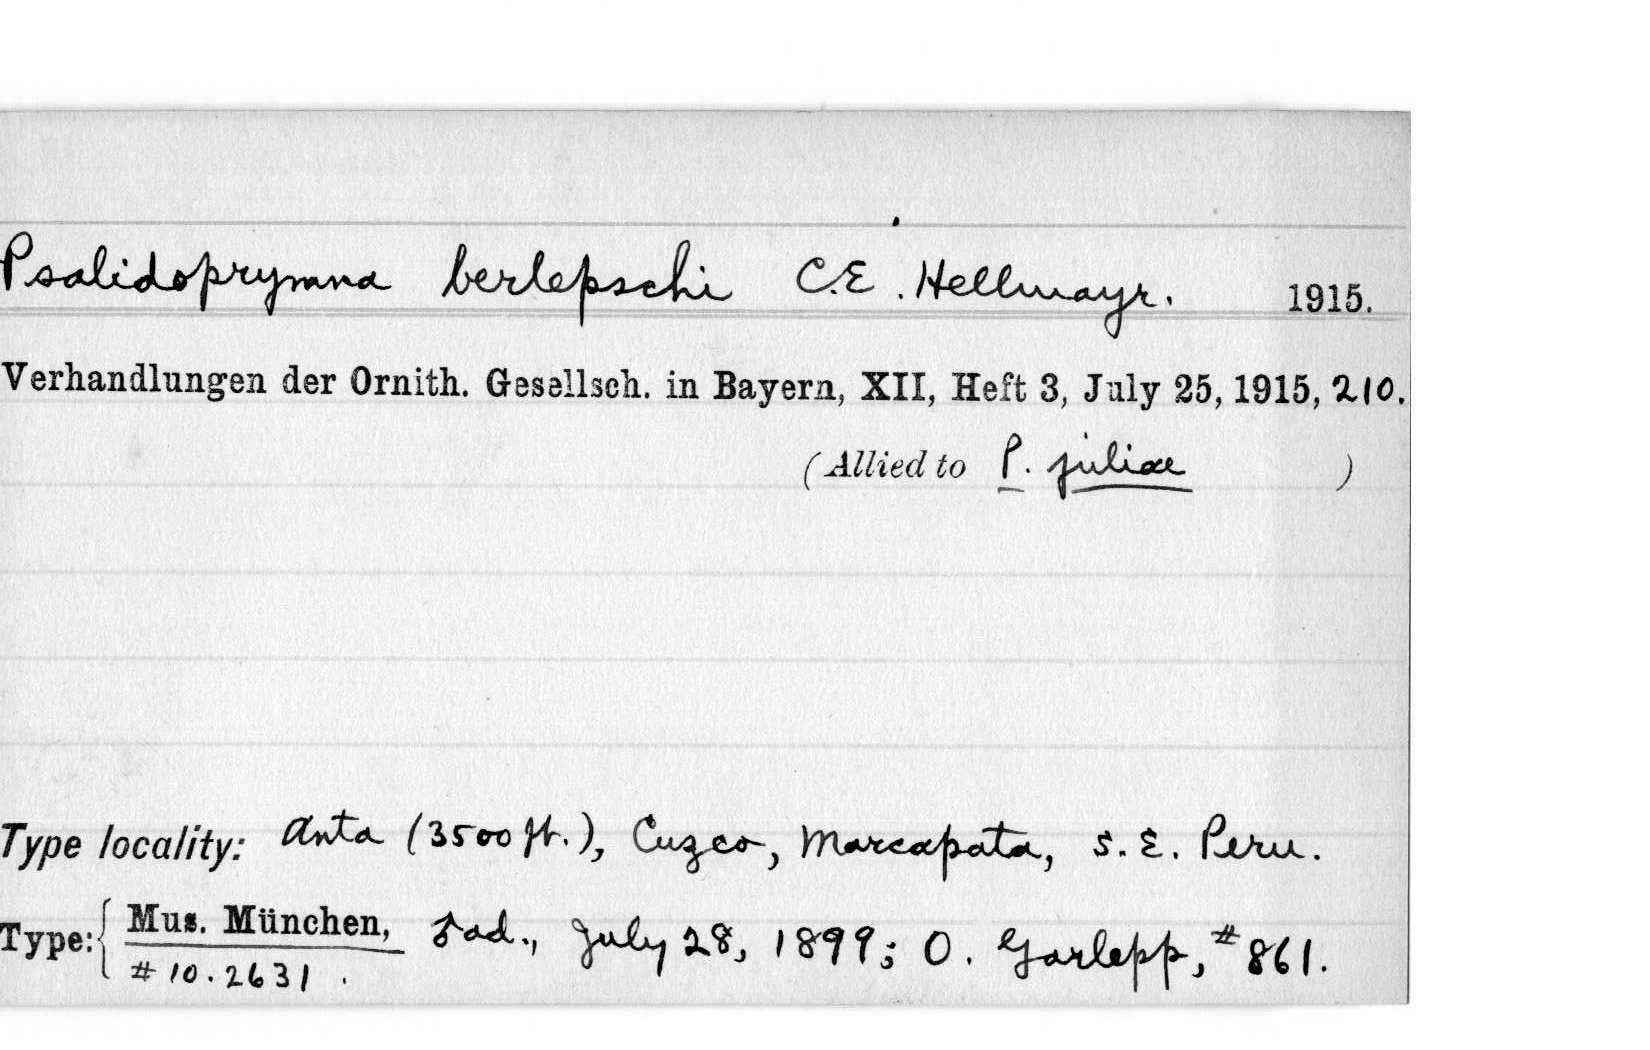 Psalidoprymna berlepschi C.E. Hellmayr. 1915.
Verhandlungen der Ornith. Gesellsch. in Bayern, XII, Heft 3, July 25, 1915, 210.
(Allied to P. juliae )
Type locality: Anta (3500 ft.), Cuzco, Marcapata, S.E. Peru.
Type: { Mus. München, ♂ ad., July 28, 1899; O. Garlepp, #861.
#10.2631.